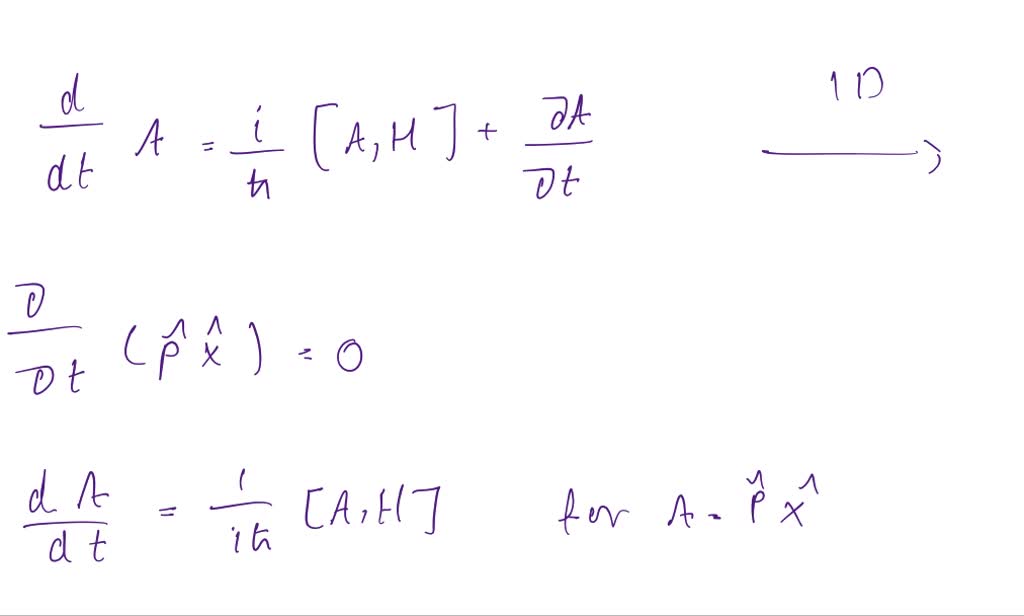 d/dt A = i/ħ [A, H] + ∂A/∂t 1D →
∂/∂t (p̂ x̂) = 0
dA/dt = 1/iħ [A, H] for A = p̂ x̂